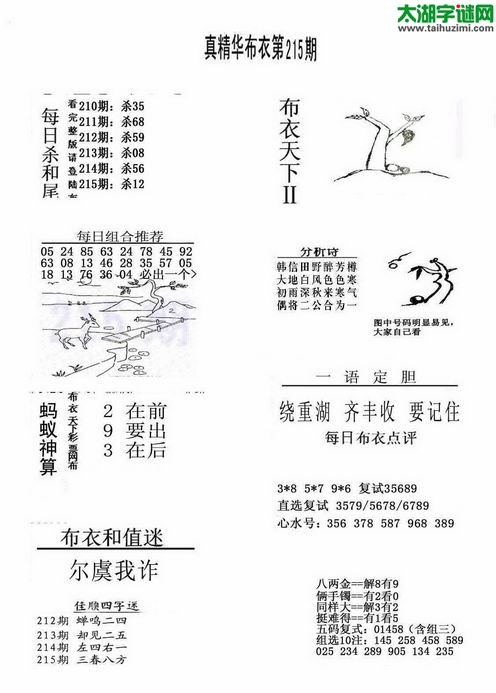 太湖字谜网
www.taihuzimi.com
真精华布衣第215期
每日杀和尾
看完整版请登陆布
210期: 杀35
211期: 杀68
212期: 杀59
213期: 杀08
214期: 杀56
215期: 杀12
布衣天下II
每日组合推荐
05 24 85 63 24 78 45 92
63 08 13 46 28 35 57 05
18 13 76 36 04 必出一个>
分析诗
韩信田野醉芳樽
大地白风色色寒
初雨深秋来寒气
偶将二公合为一
图中号码明显易见,
大家自己看
蚂蚁神算
布衣天下彩票网布
2 在前
9 要出
3 在后
一语定胆
绕重湖 齐丰收 要记住
每日布衣点评
3*8 5*7 9*6 复试35689
直选复试 3579/5678/6789
心水号: 356 378 587 968 389
布衣和值迷
尔虞我诈
佳顺四字迷
212期 蝉鸣二四
213期 却见二五
214期 左四右一
215期 三春八方
八两金==解8有9
俩手镯==有2看0
同样大==解3有2
挺难得==有1看5
五码复式: 01458 (含组三)
组选10注: 145 258 458 589
025 234 289 905 134 235